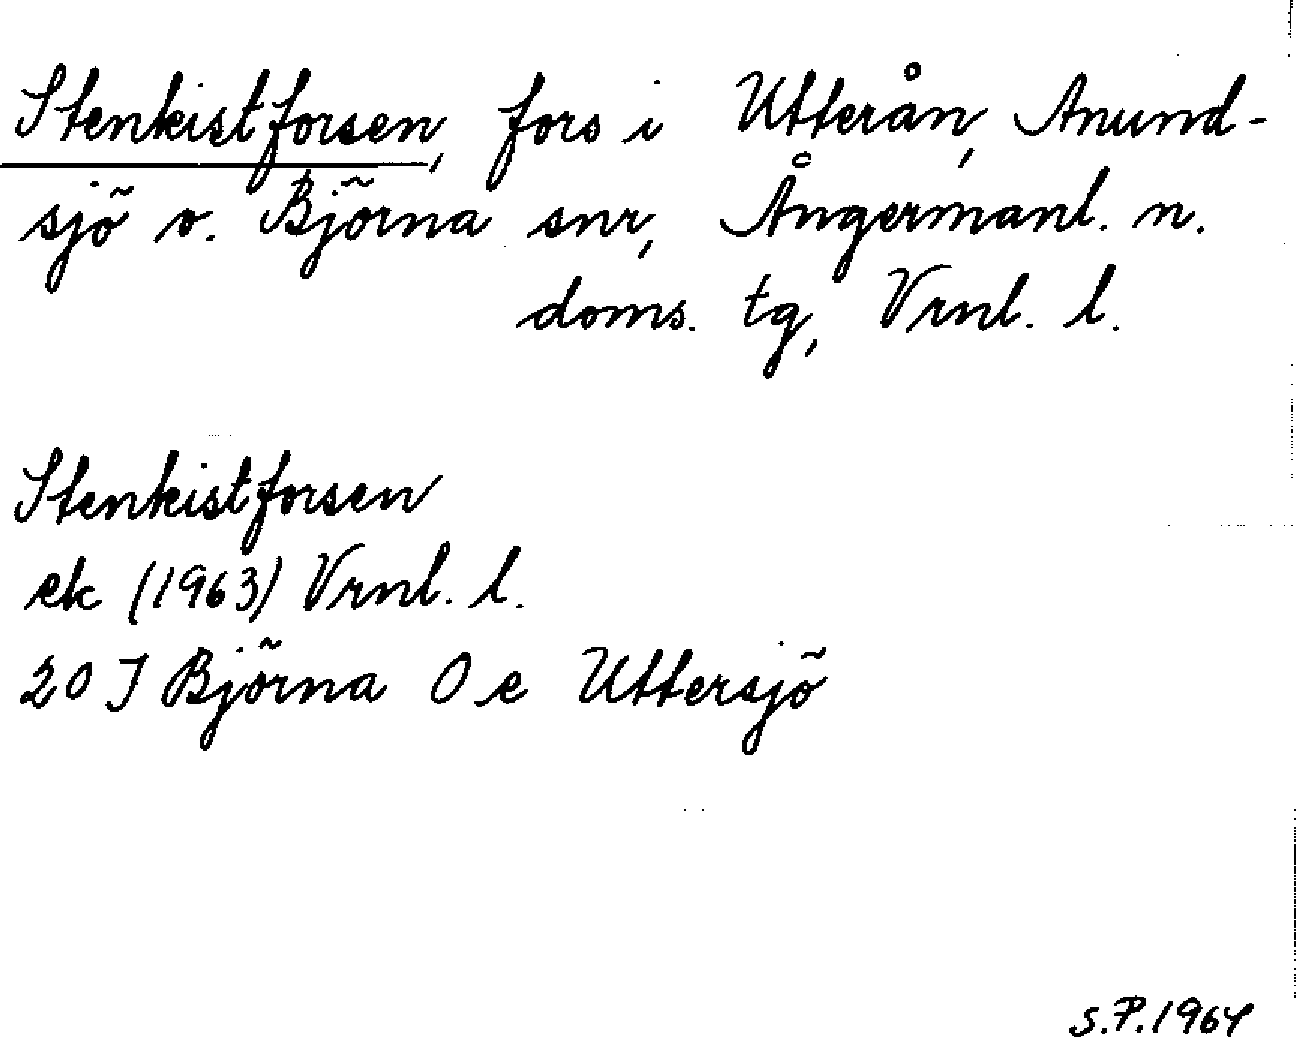 Stenkistforsen, fors i Utterån, Anund-
sjö o. Björna snr, Ångermanl. n.
doms. tg, Vrnl. l.
Stenkistforsen
ek (1963) Vrnl. l.
20 J Björna O e Uttersjö
S.P. 1964